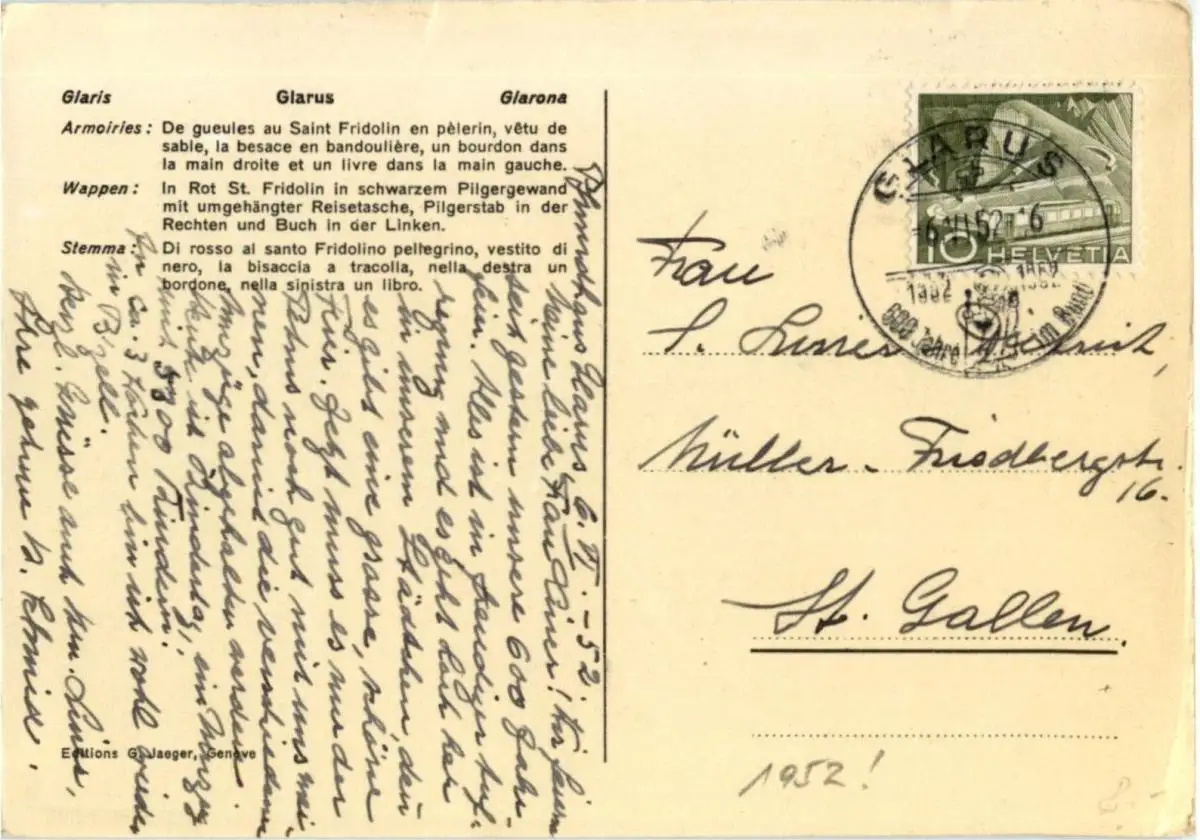 Glaris Glarus Glarona
Armoiries : De gueules au Saint Fridolin en pèlerin, vêtu de
sable, la besace en bandoulière, un bourdon dans
la main droite et un livre dans la main gauche.
Wappen : In Rot St. Fridolin in schwarzem Pilgergewand
mit umgehängter Reisetasche, Pilgerstab in der
Rechten und Buch in der Linken.
Stemma : Di rosso al santo Fridolino pellegrino, vestito di
nero, la bisaccia a tracolla, nella destra un
bordone, nella sinistra un libro.
Glarus, 6. VI. - 52.
Meine liebe Frau Liner! Wir feiern
seit gestern unsere 600 Jahr-
fein. Alles ist in freudiger Auf-
regung und es geht hoch her
in unserem Städtchen, denn
es gibt eine grosse, schöne
Feier. Jetzt muss es nur der
Petrus noch gut mit uns mei-
nen, damit die verschiedenen
Umzüge abgehalten werden.
Heute ist Kindertag, ein Umzug
mit Kindern.
In ca. 3 Wochen bin ich wohl wieder
in
Herzl. Grüsse auch Hrn. Liner,
Ihre H. Schmid.
Editions G. Jaeger, Genève
GLARUS
6. VI. 52 - 6
1352 1952
600 Jahre im Bund
10 HELVETIA
Frau
S. Liner
Müller - Friedbergstr.
16.
St. Gallen.
1952!